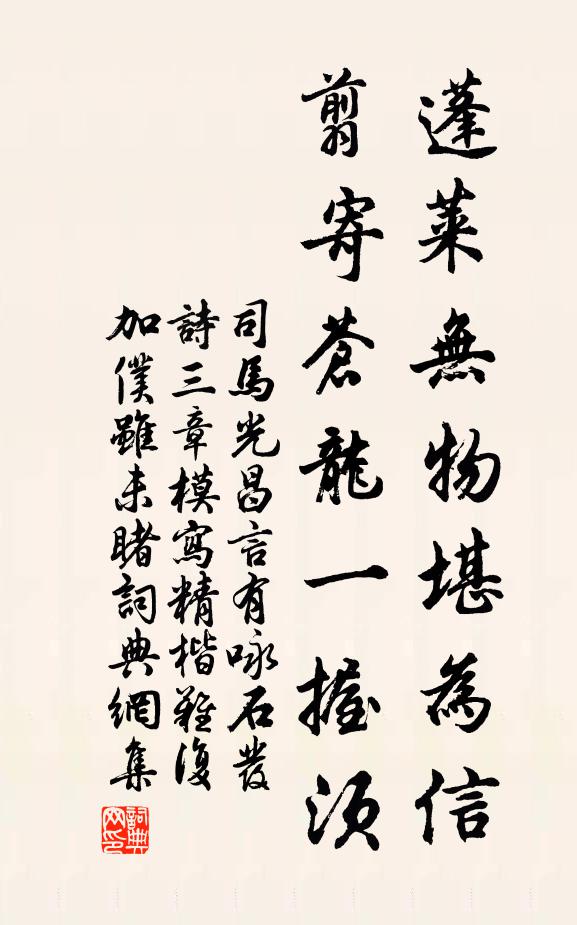 蓬萊無物堪為信
翦寄蒼龍一握須
司馬光昌言有咏石發
詩三章模寫精楷難復
加僕雖未睹詞典網集
詞典網印